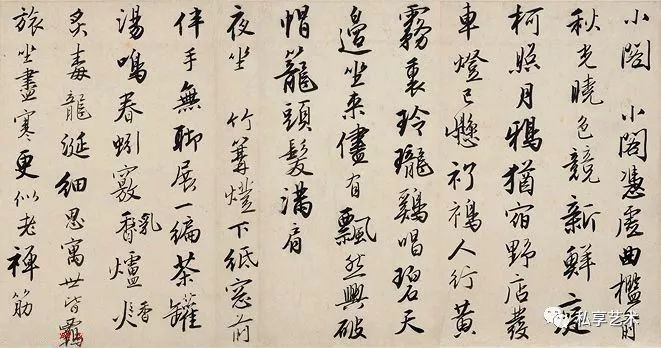 小閣 小閣憑虛曲檻前
秋光曉色競新鮮庭
柯照月鴉猶宿野店發
車燈已懸人行黃
霧裏玲瓏鷄唱碧天
邊坐来儘有飄然興破
帽籠頭髮滿肩
夜坐 竹篝燈下紙窓前
伴手無聊展一編茶罐
湯鳴春蚓竅乳香爐
炙毒龍涎細思寓世皆羈
旅坐盡寒更似老禪筋
私享艺术